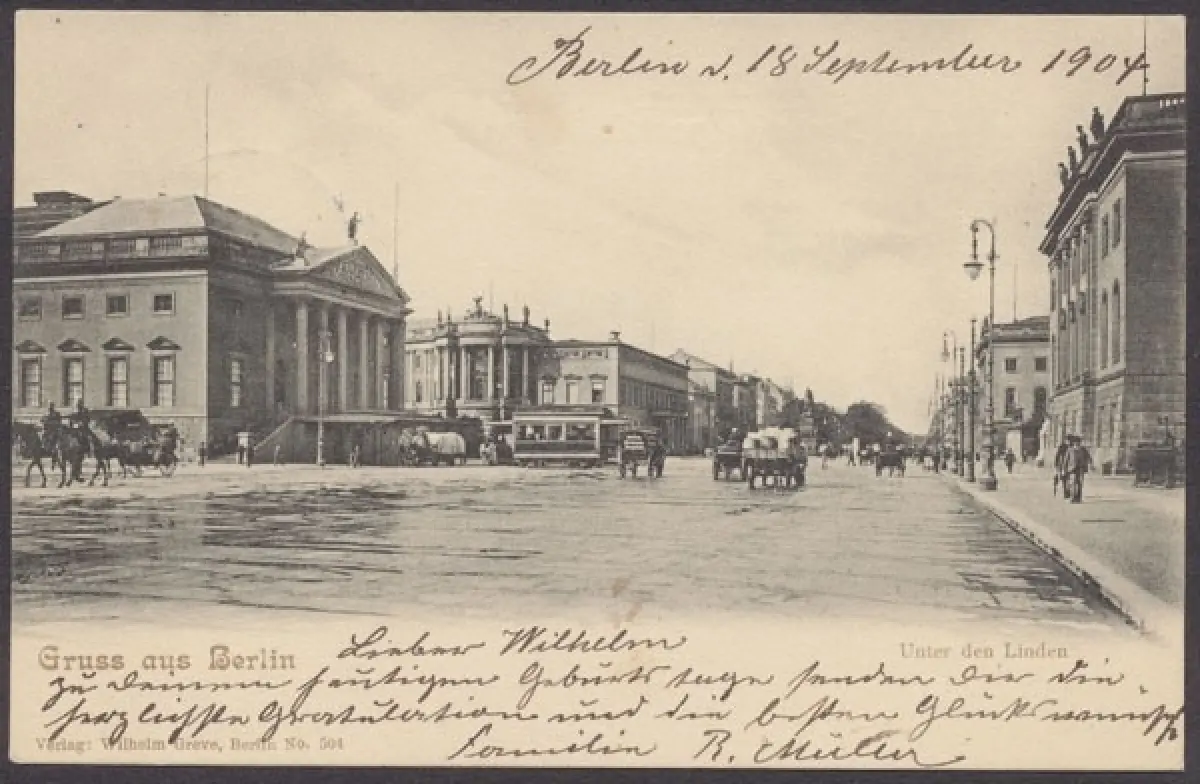 Berlin d. 18 September 1904
Gruss aus Berlin
Unter den Linden
Lieber Wilhelm
zu deinem heutigen Geburtstage senden Dir die
herzlichste Gratulation und die besten Glückswünsche
Familie R. Müller
Verlag: Wilhelm Greve, Berlin No. 504